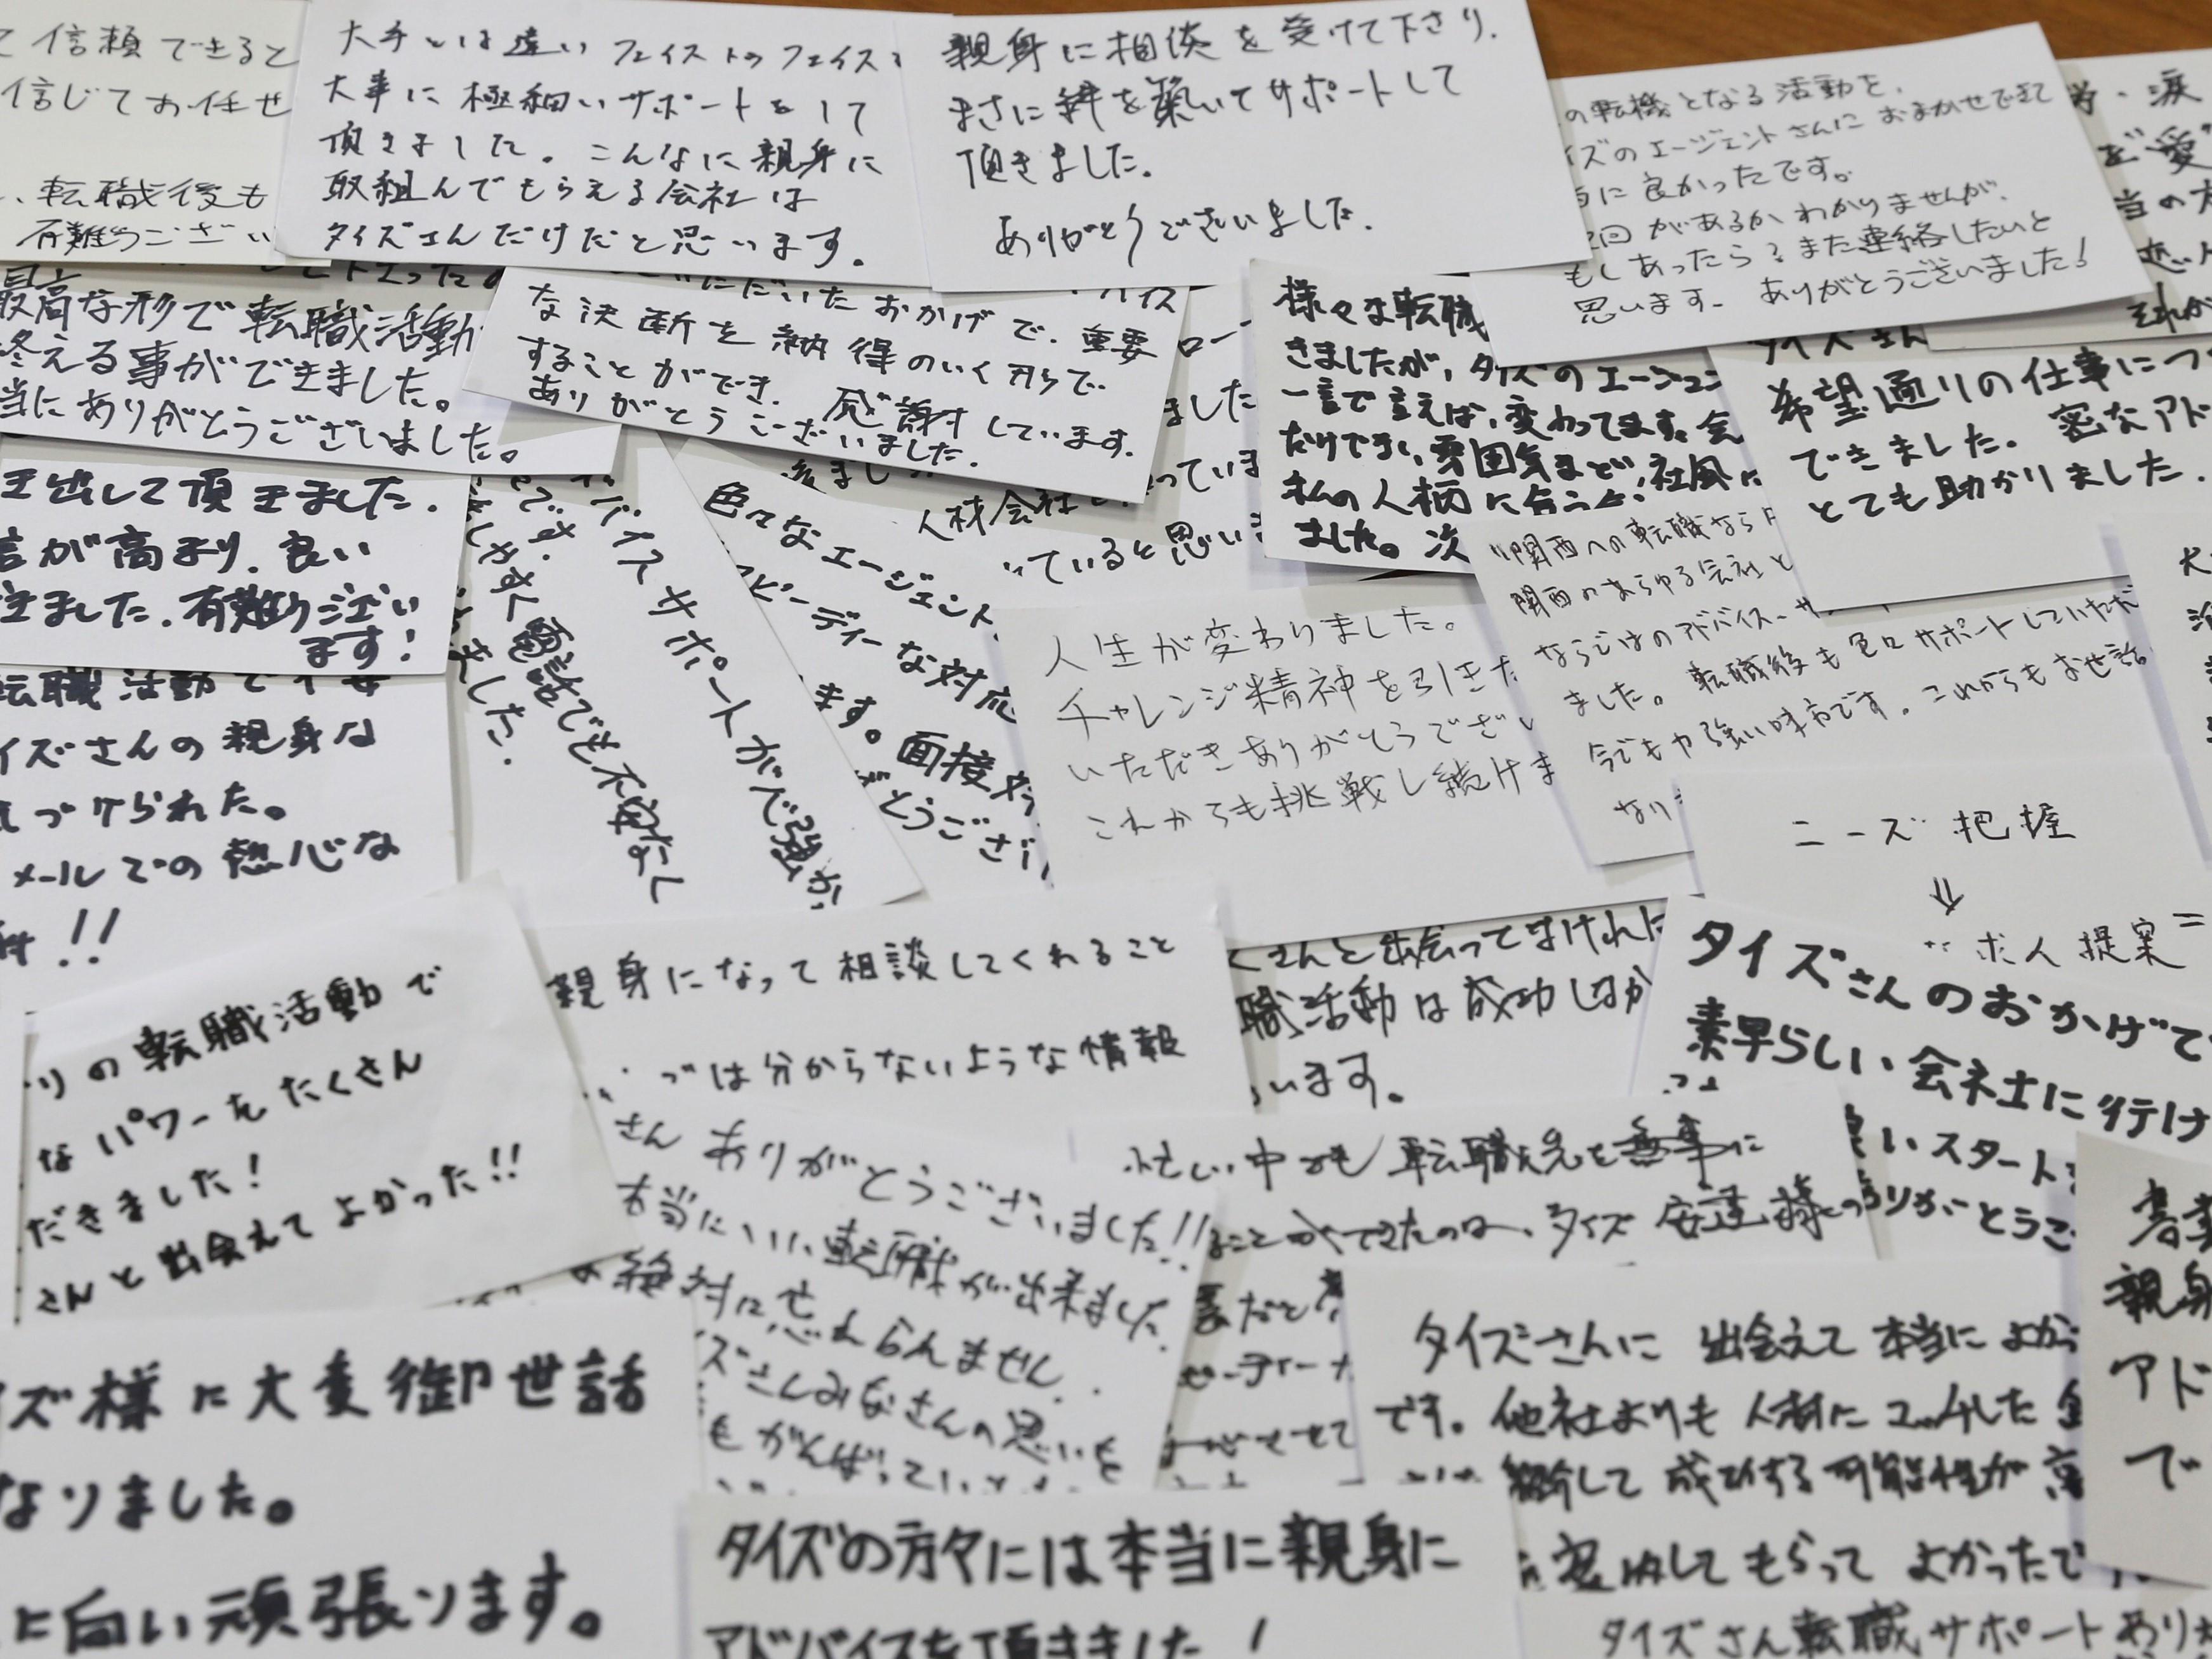 て信頼できると
信じてお任せ
転職後も
有難うござい
大手とは違い フェイストゥフェイスを
大事に極細いサポートをして
頂きました。こんなに親身に
取組んでもらえる会社は
タイズさんだけだと思います。
親身に相談を受けて下さり、
まさに絆を築いてサポートして
頂きました。
ありがとうございました。
の転機となる活動を、
イズのエージェントさんにおまかせできて
に良かったです。
回があるかわかりませんが、
もしあったら?また連絡したいと
思います。ありがとうございました!
最高な形で転職活動
終える事ができました。
当にありがとうございました。
ただいたおかげで、重要
な決断を納得のいく形で
することができ、感謝しています。
ありがとうございました。
様々な転職
きましたが、タイズのエージェン
一言で言えば、変わってます。会
だけでない、雰囲気まど、社風に
私の人柄に合う
ました。次
タイズさん
希望通りの仕事につ
できました。密なアド
とても助かりました。
き出して頂きました。
が高まり、良い
きました。有難うござい
ます!
人材会社
っていると思い
色々なエージェント
スピーディーな対応
ます。面接対
がとうござい
アドバイスサポートがで強さ
しやすく電話でも不安なく
人生が変わりました。
チャレンジ精神を引きた
いただきありがとうござい
これからも挑戦し続けま
"関西への転職なら
関西のあらゆる会社と
ならではのアドバイス、サ
ました。転職後も色々サポートしていただ
今でも力強い味方です。これからもお世話
なり
転職活動で不安
イズさんの親身な
づけられた。
メールでの熱心な
!!
ニーズ把握
⇓
求人提案
タイズさんのおかげで
素早らしい会社に行け
良いスタート
ありがとうご
りの転職活動で
なパワーをたくさん
だきました!
さんと出会えてよかった!!
親身になって相談してくれること
では分からないような情報
くさんと出会ってなければ
職活動は成功しなか
います。
さん ありがとうございました!!
本当にいい転職が出来ました。
絶対に忘れられません。
ズさんみなさんの思いを
もがんばっていき
忙しい中でも転職先を無事に
ることができたのは、タイズ 安達様の
タイズさんに出会えて本当によかっ
です。他社よりも人材にマッチした企
紹介して成功する可能性が高
してもらってよかったで
親身
アド
で
ズ様に大変御世話
なりました。
に向い頑張ります。
タイズの方々には本当に親身に
アドバイスを頂きました!
タイズさん転職サポートあり